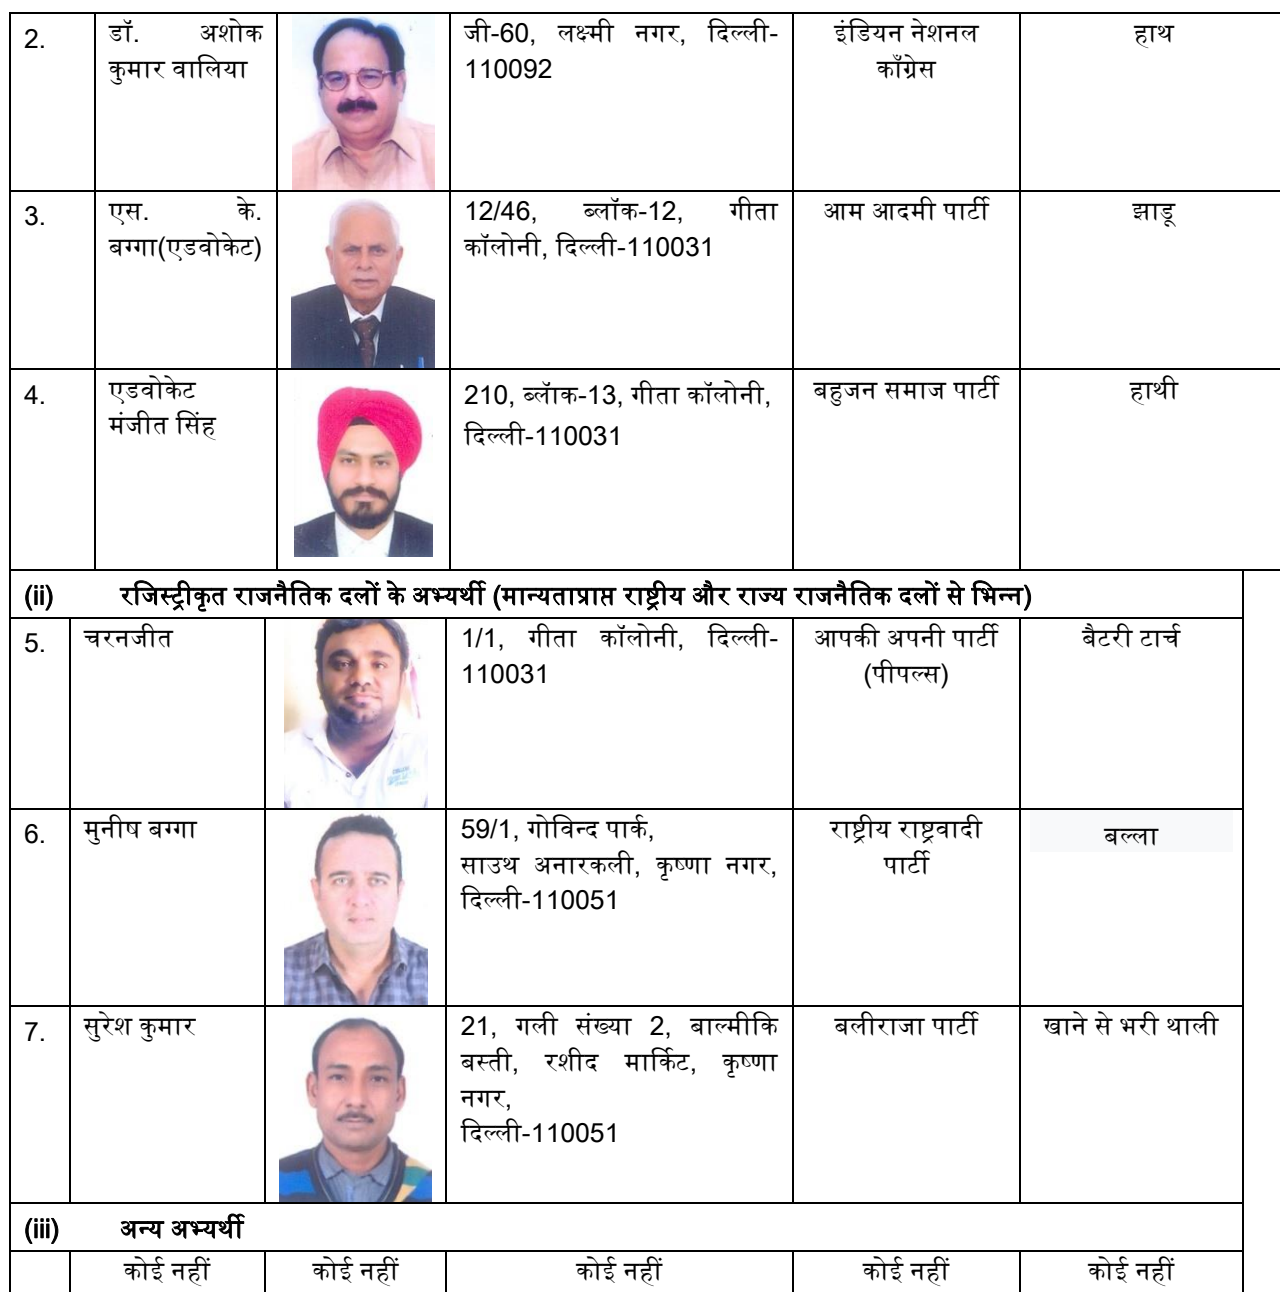 2. डॉ. अशोक कुमार वालिया जी-60, लक्ष्मी नगर, दिल्ली-110092 इंडियन नेशनल काँग्रेस हाथ
3. एस. के. बग्गा(एडवोकेट) 12/46, ब्लॉक-12, गीता कॉलोनी, दिल्ली-110031 आम आदमी पार्टी झाडू
4. एडवोकेट मंजीत सिंह 210, ब्लॉक-13, गीता कॉलोनी, दिल्ली-110031 बहुजन समाज पार्टी हाथी
(ii) रजिस्ट्रीकृत राजनैतिक दलों के अभ्यर्थी (मान्यताप्राप्त राष्ट्रीय और राज्य राजनैतिक दलों से भिन्न)
5. चरनजीत 1/1, गीता कॉलोनी, दिल्ली-110031 आपकी अपनी पार्टी (पीपल्स) बैटरी टार्च
6. मुनीष बग्गा 59/1, गोविन्द पार्क, साउथ अनारकली, कृष्णा नगर, दिल्ली-110051 राष्ट्रीय राष्ट्रवादी पार्टी बल्ला
7. सुरेश कुमार 21, गली संख्या 2, बाल्मीकि बस्ती, रशीद मार्किट, कृष्णा नगर, दिल्ली-110051 बलीराजा पार्टी खाने से भरी थाली
(iii) अन्य अभ्यर्थी
कोई नहीं कोई नहीं कोई नहीं कोई नहीं कोई नहीं